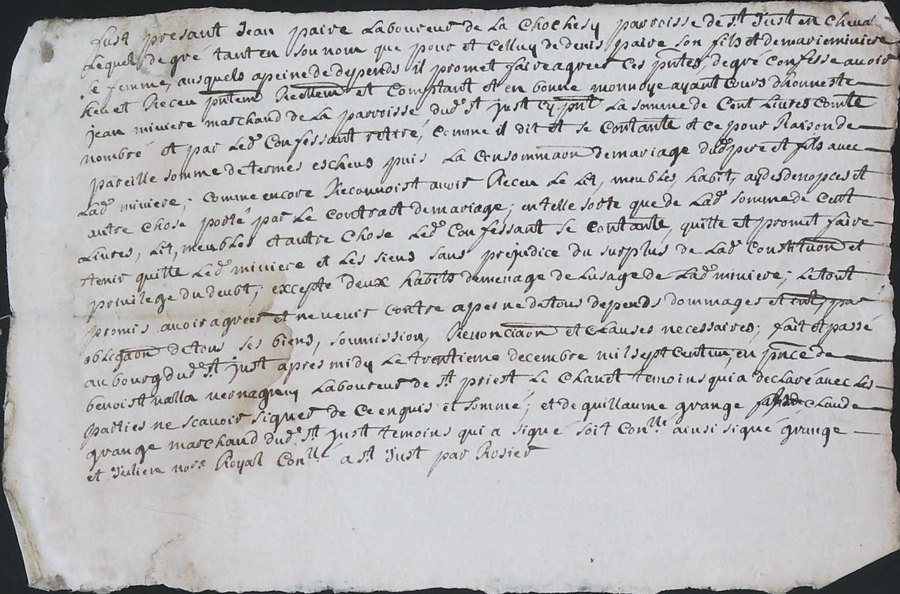 fust presant Jean paire Laboureur de La Chochesy parroisse de st Just en Cheva
Lequel de gré tant en son nom que pour et Celluy de denis paire son fils et de marie miniere
se femme, ausquels apeine de depends il promet faire agreer Ces pntes, de gré Confesse avoir
heu et Receu Reellemt et Comptant et en bonne monnoye ayant Cours d'honneste
jean miniere marchand de La parroisse dud. st just La somme de Cent Livres Conte
nombré et par Led. Confessant retiré, Comme il dit et se Contante et ce pour Raison de
pareille somme de termes escheus puis La Consommaõn de mariage dud. pere et fils avec
Lad. miniere; Comme encore Reconnoist avoir Receu Le Lit, meubles, habit, de nopces et
autre Chose porté par Le Contract de mariage; en telle sorte que de Lad. somme de Cent
Livres, Lit, meubles et autre Chose Led. Confessant se Contante, quitte et promet faire
tenir quitte Led. miniere et Les siens sans prejudice du surplus de Lad. Constituõn et
privilege du deubt; excepté deux habits de menage de Lusage de Lad. miniere; Le tout
promis avoir agreer et ne venir Contre a peine de tous depends dommages et par
obligaõn de tous ses biens, soumission, Renonciaõn et Clauses necessaires; fait et passé
au bourg dud. st just apres midy Le trentieme decembre mil sept Cent un, en pñce de
benoist Laboureur de st priest La temoins qui a declaré avec Les
parties ne scavoir signer de Ce enquis et sommé; et de guillaume grange Claude
grange marchand dud. st just temoins qui a signé soit Conlle ainsi signé grange
et nore Royal Conll a st Just par Rosier